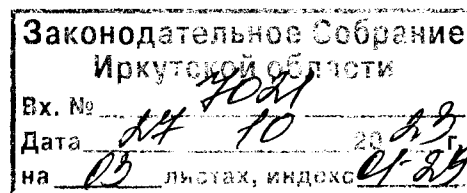 Законодательное Собрание
Иркутской области
Вх. № 7021
Дата 27 10 2023 г.
на 03 листах, индекс 01-25